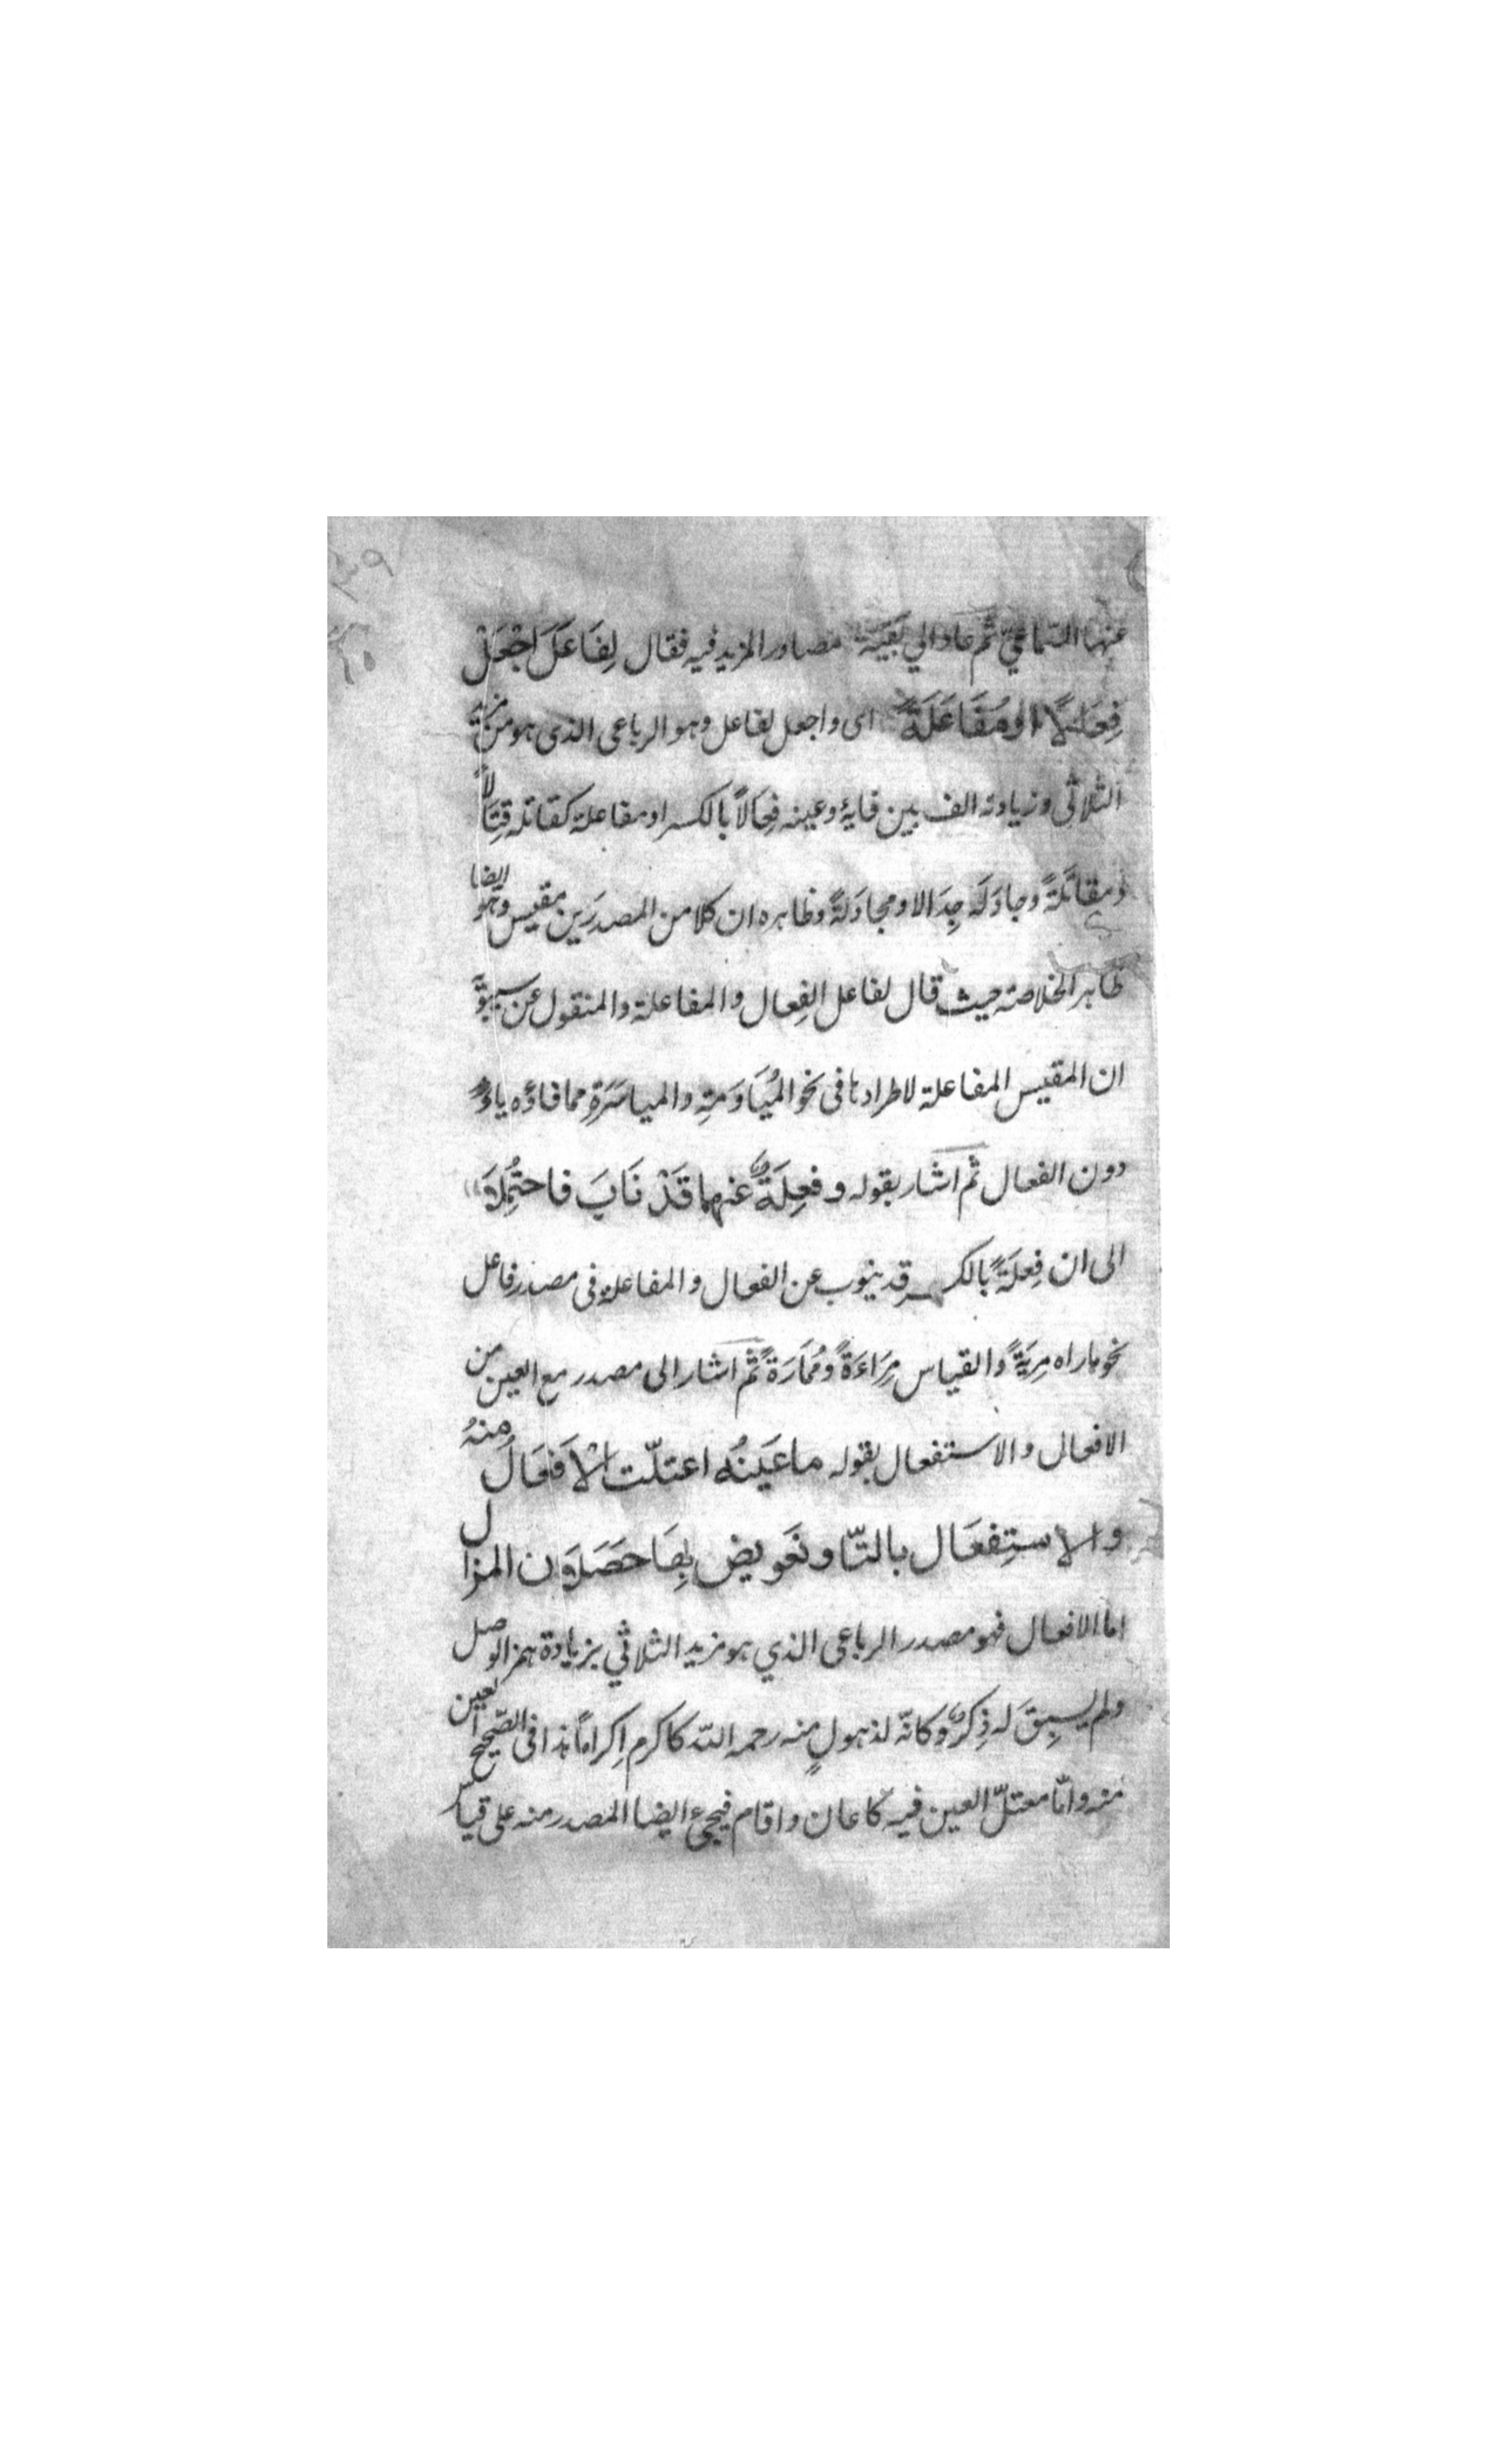 عنها السماعي ثم عاد الي بقية مصادر المزيد فيه فقال لِفَاعَلَ اجْعَلْ
فِعَالًا او مُفَاعَلَةً اى واجعل لفاعل وهو الرباعى الذى هو من مزيد
الثلاثى وزيادته الف بين فايهٔ وعينه فِعَالاً بالكسر او مفاعلة كقاتله قِتَالاً
ومقاتَلةً وجادَلَه جِدَالا ومجادَلةً وظاهره ان كلا من المصدرَين مقيس وهو ايضا
ظاهر الخلاصة حيث قال لفاعل الفِعال والمفاعلة والمنقول عن سيبويه
ان المقيس المفاعلة لاطرادها فى نحو المُيَاوَمَتِه والمياسَرَةِ مما فاؤه ياءٌ
دون الفعال ثم اشار بقوله و فعِلَةٌ عنهما قَدْ نَابَ فاحتُمِلَا
الى ان فِعلَةً بالكسر قد ينوب عن الفعال والمفاعلة فى مصدر فاعل
نحو ماراه مِريَةً والقياس مِرَاءَةً ومُمَارَةً ثم اشار الى مصدر مع العين من
الافعال والاستفعال بقوله ما عَينُه اعتلّت الْاَفعَالُ منهُ
والاستِفعَال بالتّا وتعَويض بِهَا حصَلَا من المزال
اما الافعال فهو مصدر الرباعى الذي هو مزيد الثلاثي بزيادة همز الوصل
ولم يسبِقَ له ذِكرٌ وكانّه لذهولٍ منه رحمه الله كاكرم اِكراماً هذا فى الصّحيح العين
منه وامّا معتلّ العين فيه كاعان واقام فيجئ ايضا المصدر منه على قياس